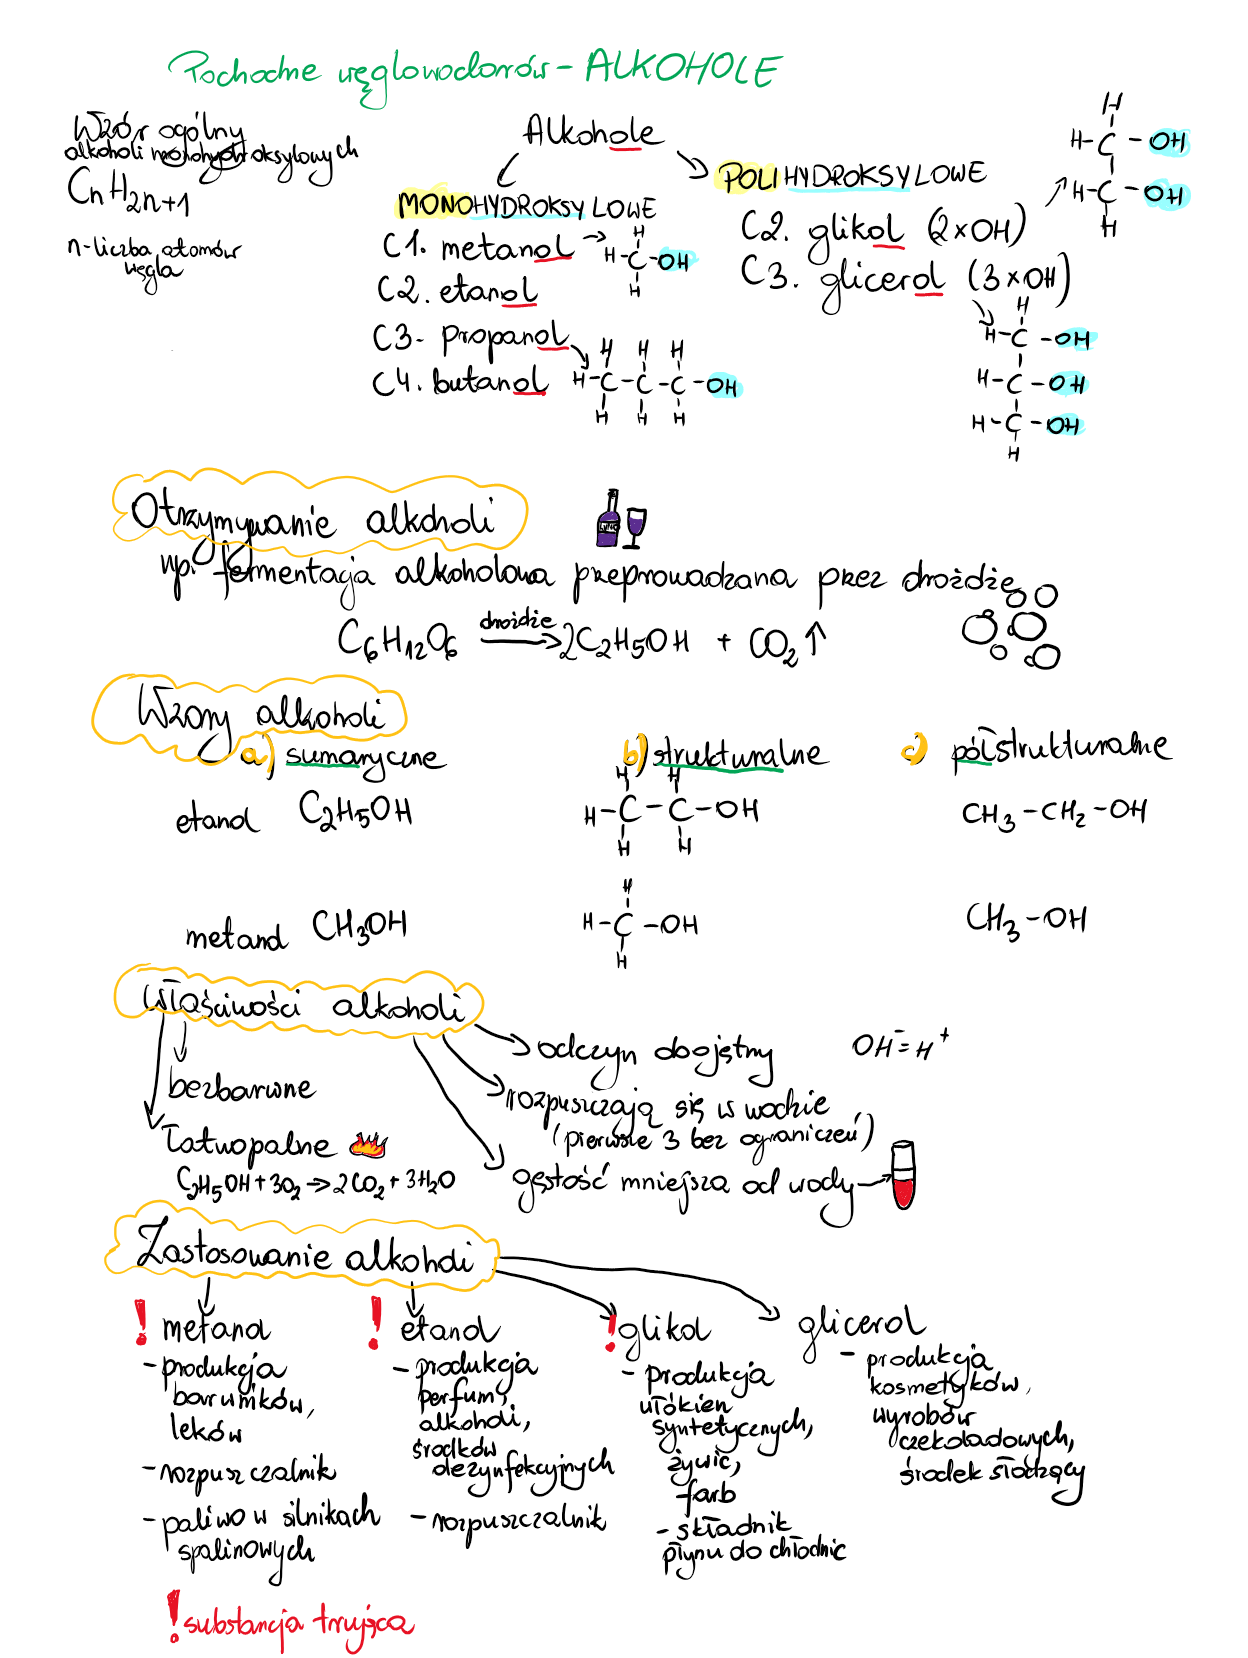 Pochodne węglowodorów - ALKOHOLE
Wzór ogólny
alkoholi monohydroksylowych
CnH2n+1
n-liczba atomów
węgla
Alkohole
MONOHYDROKSYLOWE
C1. metanol
C2. etanol
C3. propanol
C4. butanol
H
H-C-OH
H
H H H
H-C-C-C-OH
H H H
POLIHYDROKSYLOWE
C2. glikol (2xOH)
C3. glicerol (3xOH)
H
H-C-OH
H-C-OH
H
H
H-C-OH
H-C-OH
H-C-OH
H
Otrzymywanie alkoholi
np. fermentacja alkoholowa przeprowadzana przez drożdże
drożdże
C6H12O6 → 2C2H5OH + CO2↑
Wzory alkoholi
a) sumaryczne b) strukturalne c) półstrukturalne
H H
etanol C2H5OH H-C-C-OH CH3-CH2-OH
H H
H
metanol CH3OH H-C-OH CH3-OH
H
Właściwości alkoholi
odczyn obojętny OH⁻=H⁺
bezbarwne
rozpuszczają się w wodzie
(pierwsze 3 bez ograniczeń)
łatwopalne
C2H5OH+3O2→2CO2+3H2O
gęstość mniejsza od wody
Zastosowanie alkoholi
! metanol
-produkcja
barwników,
leków
-rozpuszczalnik
-paliwo w silnikach
spalinowych
! etanol
-produkcja
perfum,
alkoholi,
środków
dezynfekcyjnych
-rozpuszczalnik
! glikol
-produkcja
włókien
syntetycznych,
żywic,
farb
-składnik
płynu do chłodnic
glicerol
- produkcja
kosmetyków,
wyrobów
czekoladowych,
środek słodzący
! substancja trująca